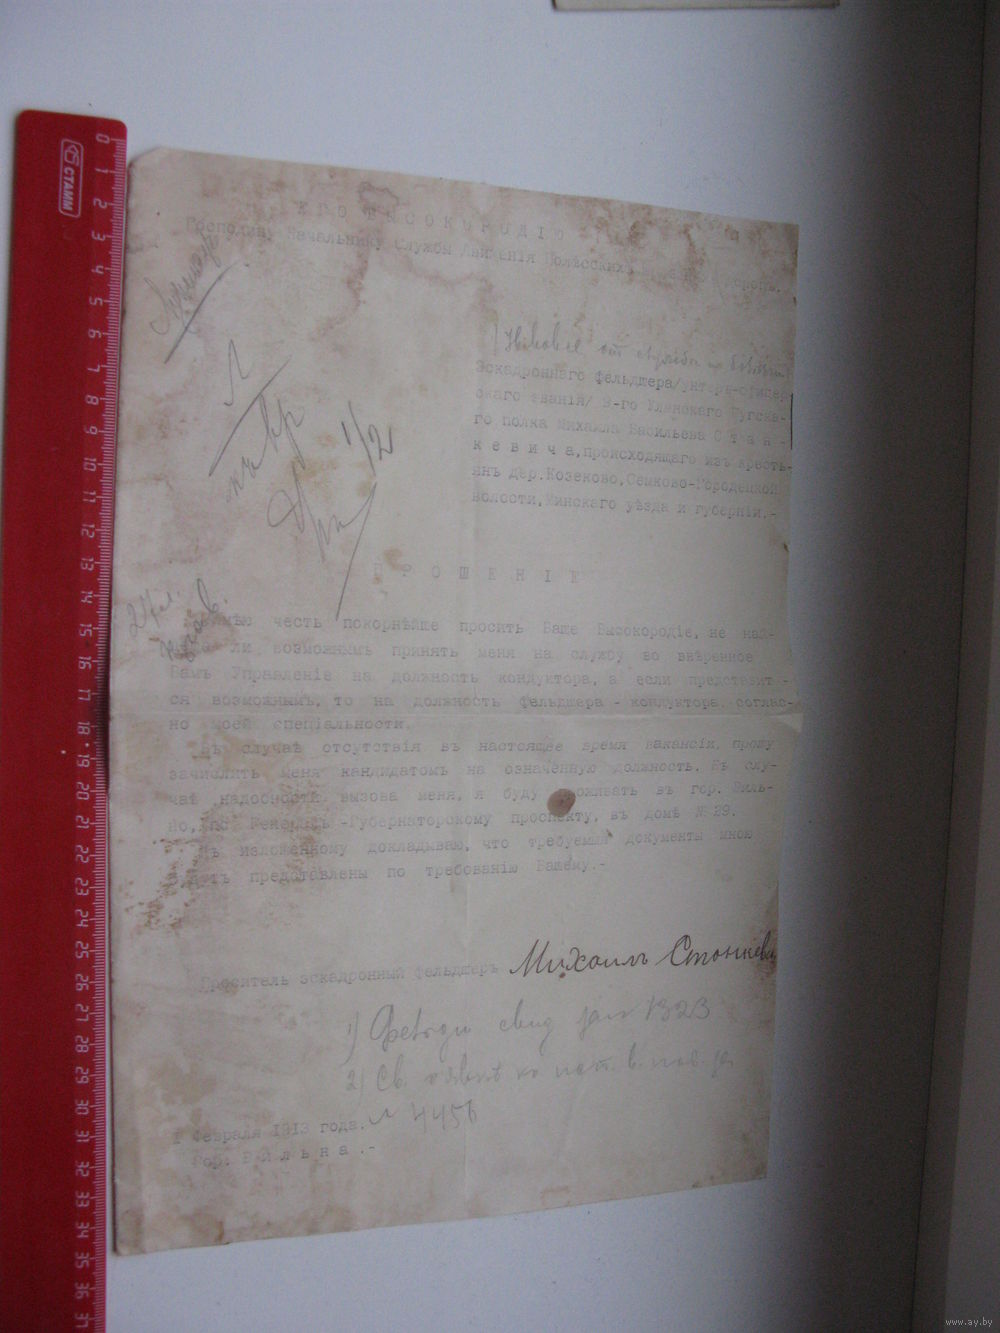 ЕГО ВЫСОКОРОДІЮ
Господину Начальнику Службы Движенія Полѣсскихъ дорогъ.
Эскадроннаго фельдшера/унтеръ-офицер-
скаго званія/ 9-го Уланскаго Бугска-
го полка Михаила Васильева С т а н -
к е в и ч а, происходящаго изъ кресть-
янъ дер. Козеково, Семково-Городецкой
волости, Минскаго уѣзда и губерніи.-
1/2
П Р О Ш Е Н І Е
24 л.
Имѣю честь покорнѣйше просить Ваше Высокородіе, не най-
ли возможнымъ принять меня на службу во ввѣренное
Вамъ Управленіе на должность кондуктора, а если представит-
ся возможнымъ, то на должность фельдшера - кондуктора, соглас-
но моей спеціальности.
Въ случаѣ отсутствія въ настоящее время вакансіи, прошу
зачислить меня кандидатомъ на означенную должность. Въ слу-
чаѣ надобности вызова меня, я буду проживать въ гор. Виль-
но, по Генералъ-Губернаторскому проспекту, въ домѣ № 29.
Къ изложенному докладываю, что требуемыя документы мною
представлены по требованію Вашему.-
Проситель эскадронный фельдшеръ Михаилъ Станкевич
1) свид за № 1323
2) Св.
№ 4456
1 Февраля 1913 года.
Гор. В и л ь н а .-
СТАММ
0 1 2 3 4 5 6 7 8 9 10 11 12 13 14 15 16 17 18 19 20 21 22 23 24 25 26 27 28 29 30 31 32 33 34 35 36 37
www.ay.by